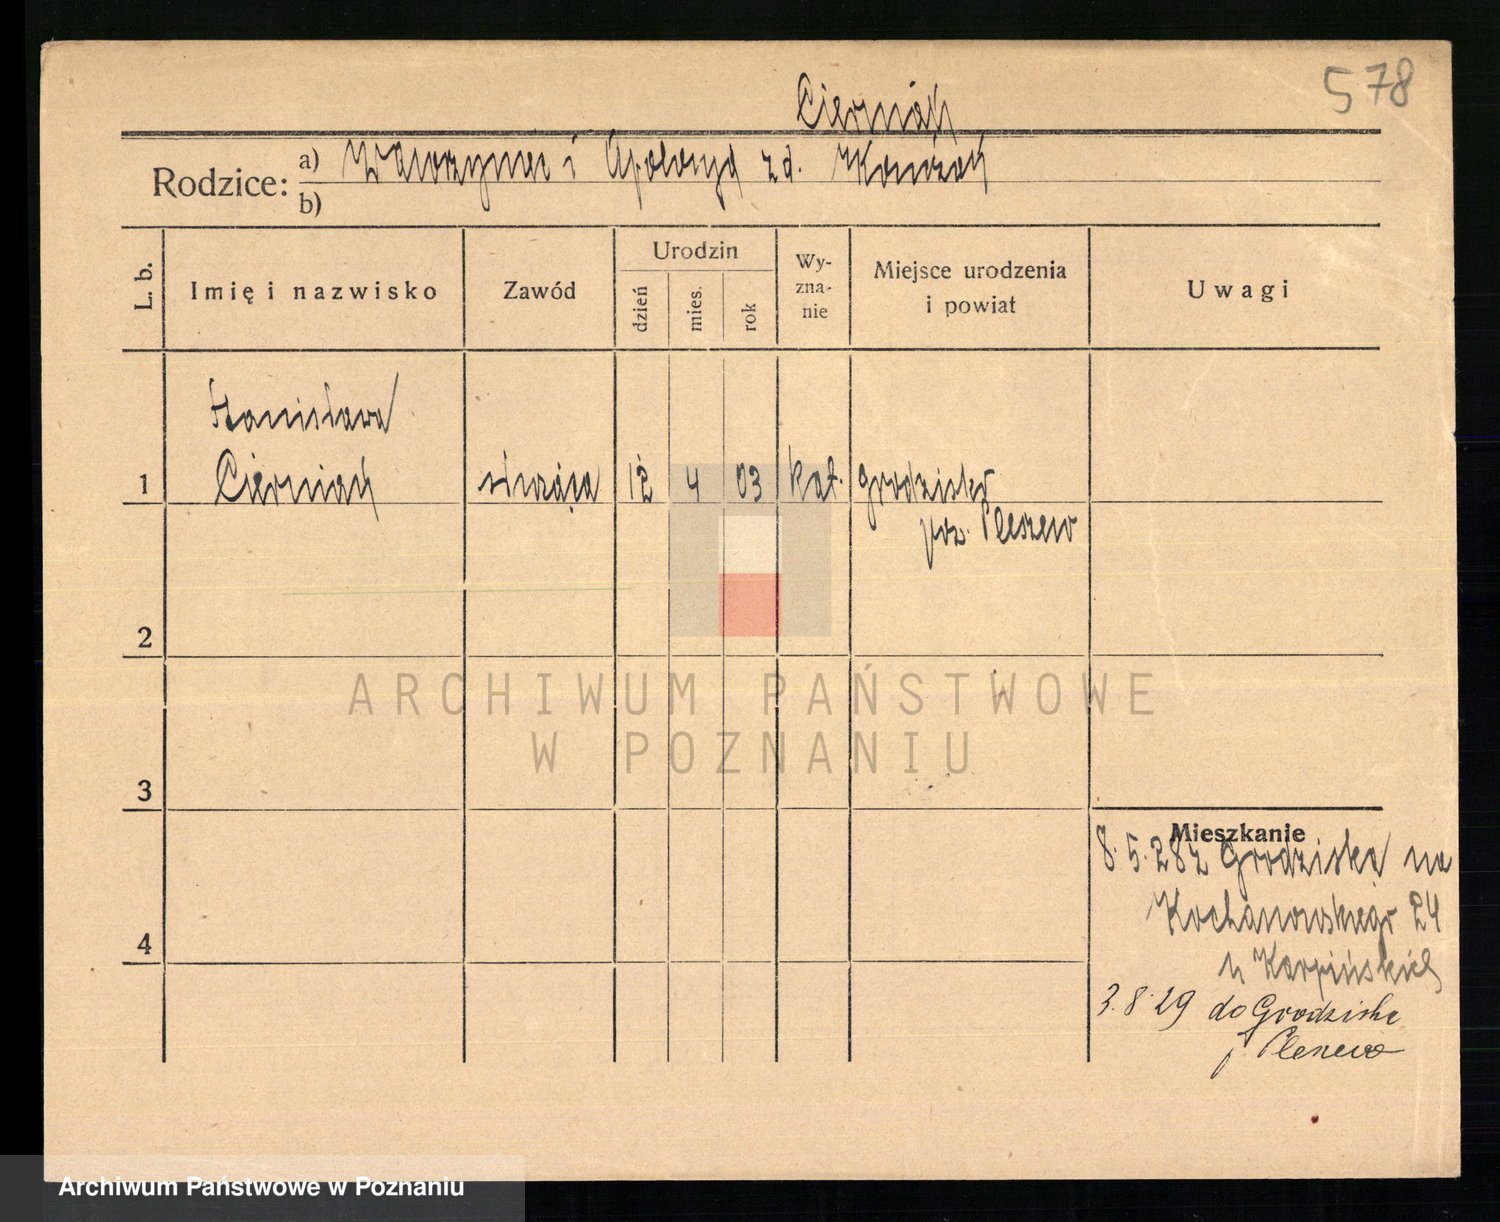 578
Cierniak
Rodzice:
a) Wawrzyniec i Apolonja zd.
b)
L. b.
Imię i nazwisko
Zawód
Urodzin
dzień
mies.
rok
Wy-
zna-
nie
Miejsce urodzenia
i powiat
Uwagi
Stanisława
1 Cierniak służąca 12 4 03 kat. Grodzisko
pow. Pleszew
2
3
4
ARCHIWUM PAŃSTWOWE
W POZNANIU
Mieszkanie
8.5.28 z Grodziska na
Kochanowskiego 24
u Karpińskich
3.8.29 do Grodziska
p. Pleszew
Archiwum Państwowe w Poznaniu